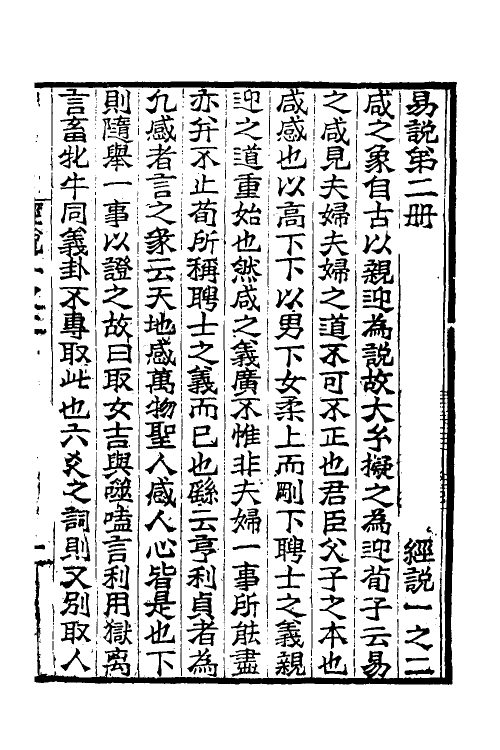 易說第二册 經說一之二
咸之象自古以親迎為說故大夕擬之為迎荀子云易
之咸見夫婦夫婦之道不可不正也君臣父子之本也
咸感也以高下下以男下女柔上而剛下聘士之義親
迎之道重始也然咸之義廣不惟非夫婦一事所能盡
亦并不止荀所稱聘士之義而已也繇云亨利貞者為
凡感者言之彖云天地感萬物聖人感人心皆是也下
則隨舉一事以證之故曰取女吉與噬嗑言利用獄離
言畜牝牛同義卦不專取此也六爻之詞則又別取人
經說一之二
一